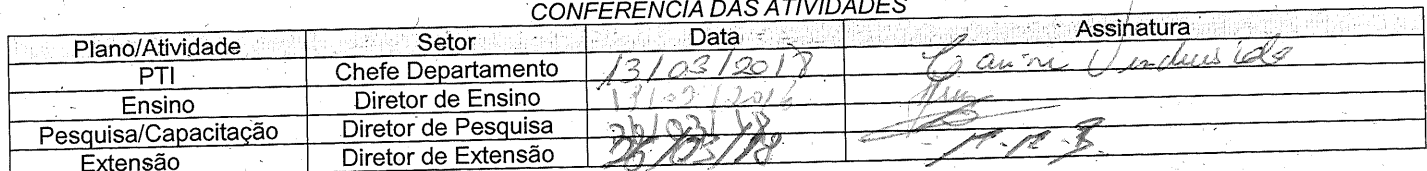 CONFERÊNCIA DAS ATIVIDADES
Plano/Atividade Setor Data Assinatura
PTI Chefe Departamento 13/03/2018
Ensino Diretor de Ensino
Pesquisa/Capacitação Diretor de Pesquisa
Extensão Diretor de Extensão 26/03/18